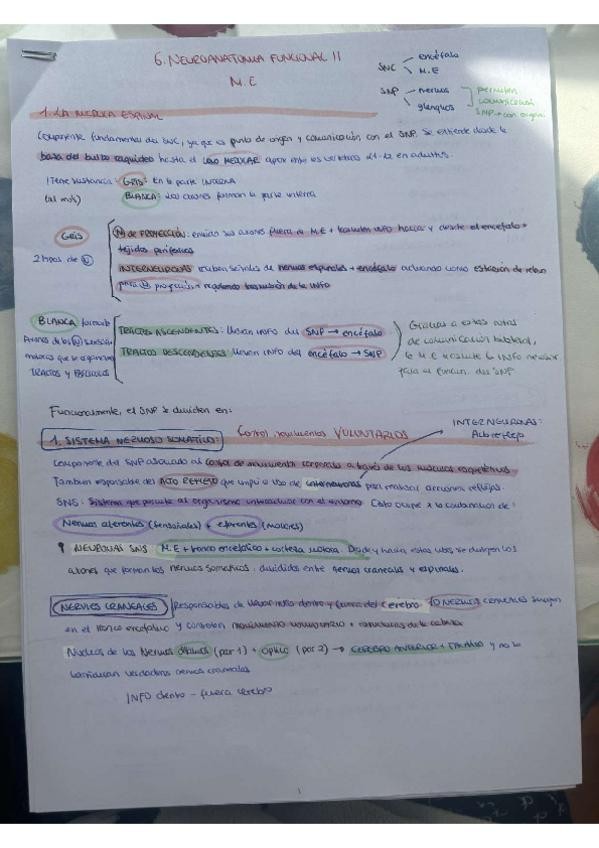 6. NEUROANATOMIA FUNCIONAL II
M.E
SNC encéfalo
M.E
SNP nervios
ganglios
permiten
comunicación
SNP → con organos
1. LA MEDULA ESPINAL
Componente fundamental del SNC, ya que es punto de origen y comunicación con el SNP. Se extiende desde la
base del bulbo raquideo hasta el CONO MEDULAR aprox entre las vertebras L1-L2 en adultos.
Tiene sustancia: GRIS: En la parte INTERNA
BLANCA: Los axones forman la parte
GRIS
2 tipos de N
N de PROYECCIÓN: envian sus axones fuera M.E + transmiten INFO hacia y desde el encéfalo +
tejidos periféricos
INTERNEURONAS reciben señales de nervios espinales + encéfalo actuando como estación de relevo
para N proyección + regulando transmisión de la INFO
BLANCA formada
Axones de las N sensoriales
motoras que se organizan
TRACTOS y FASCICULOS
TRACTOS ASCENDENTES: llevan INFO del SNP → encéfalo
TRACTOS DESCENDENTES: llevan INFO del encéfalo → SNP
Gracias a estas rutas
de comunicación bilateral,
la M.E transmite la INFO
para el funcion. del SNP
Funcionalmente, el SNP se dividen en:
1. SISTEMA NERVIOSO SOMATICO:
Control movimientos VOLUNTARIOS
INTERNEURONAS:
Acto reflejo
Componente del SNP asociado al control de movimiento corporal a través de los músculos esqueléticos
Tambien responsable del ACTO REFLEJO que implica uso de interneuronas para realizar acciones reflejas.
SNS: Sistema que permite al organismo interactuar con el entorno. Esto ocurre x la combinación de:
Nervios aferentes (sensoriales) + eferentes (motores)
NEURONAS SNS M.E + tronco encefálico + corteza motora. Desde y hacia estas vias se dirigen los
axones que forman los nervios somaticos: divididos entre nervios craneales y espinales.
NERVIOS CRANEALES Responsables de llevar info dentro y fuera del cerebro. 10 NERVIOS craneales surgen
en el tronco encefálico y controlan movimiento voluntario + estructuras de la cabeza
Núcleos de los Nervios olfativo (par 1) + óptico (par 2) → CEREBRO ANTERIOR + TALAMO y no se
consideran verdaderos nervios craneales
INFO dentro - fuera cerebro
1